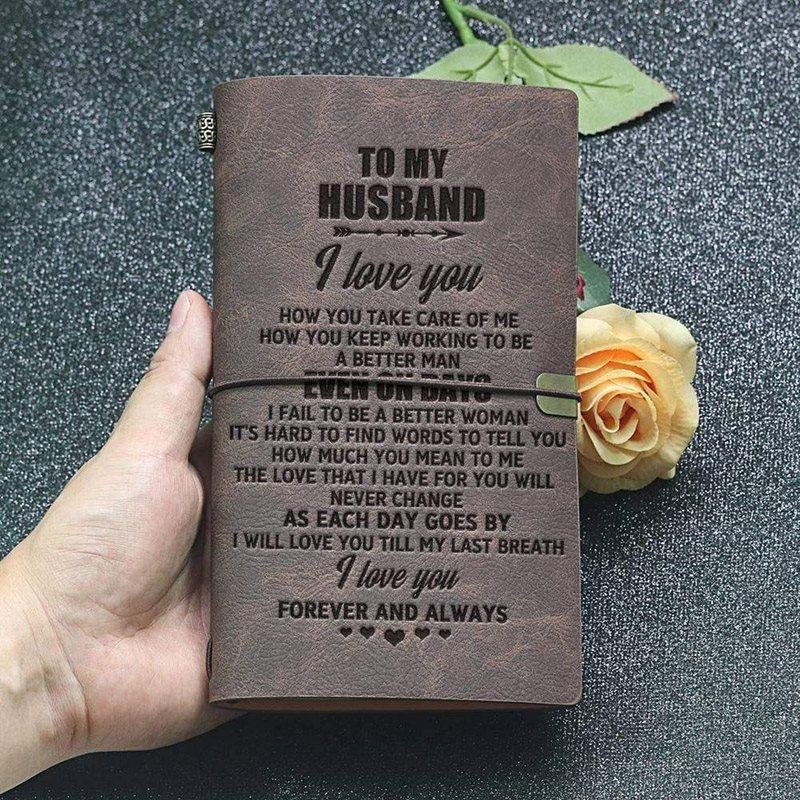 TO MY
HUSBAND
I love you
HOW YOU TAKE CARE OF ME
HOW YOU KEEP WORKING TO BE
A BETTER MAN
EVEN ON DAYS
I FAIL TO BE A BETTER WOMAN
IT'S HARD TO FIND WORDS TO TELL YOU
HOW MUCH YOU MEAN TO ME
THE LOVE THAT I HAVE FOR YOU WILL
NEVER CHANGE
AS EACH DAY GOES BY
I WILL LOVE YOU TILL MY LAST BREATH
I love you
FOREVER AND ALWAYS